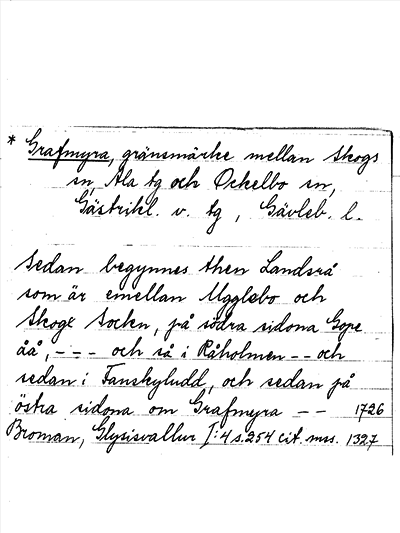 * Grafmyra, gränsmärke mellan Skogs
sn, Ala tg och Ockelbo sn,
Gästrikl. v. tg, Gävleb. l.
Sedan begynnes then Landsrå
som är emellan Ugglebo och
Skogs Sockn, på södra sidona Gope
åå, --- och så i Råholmen -- och
sedan i Fanskyludd, och sedan på
östra sidona om Grafmyra -- 1726
Broman, Glysisvallur I:4 s. 254 cit. mss. 1327